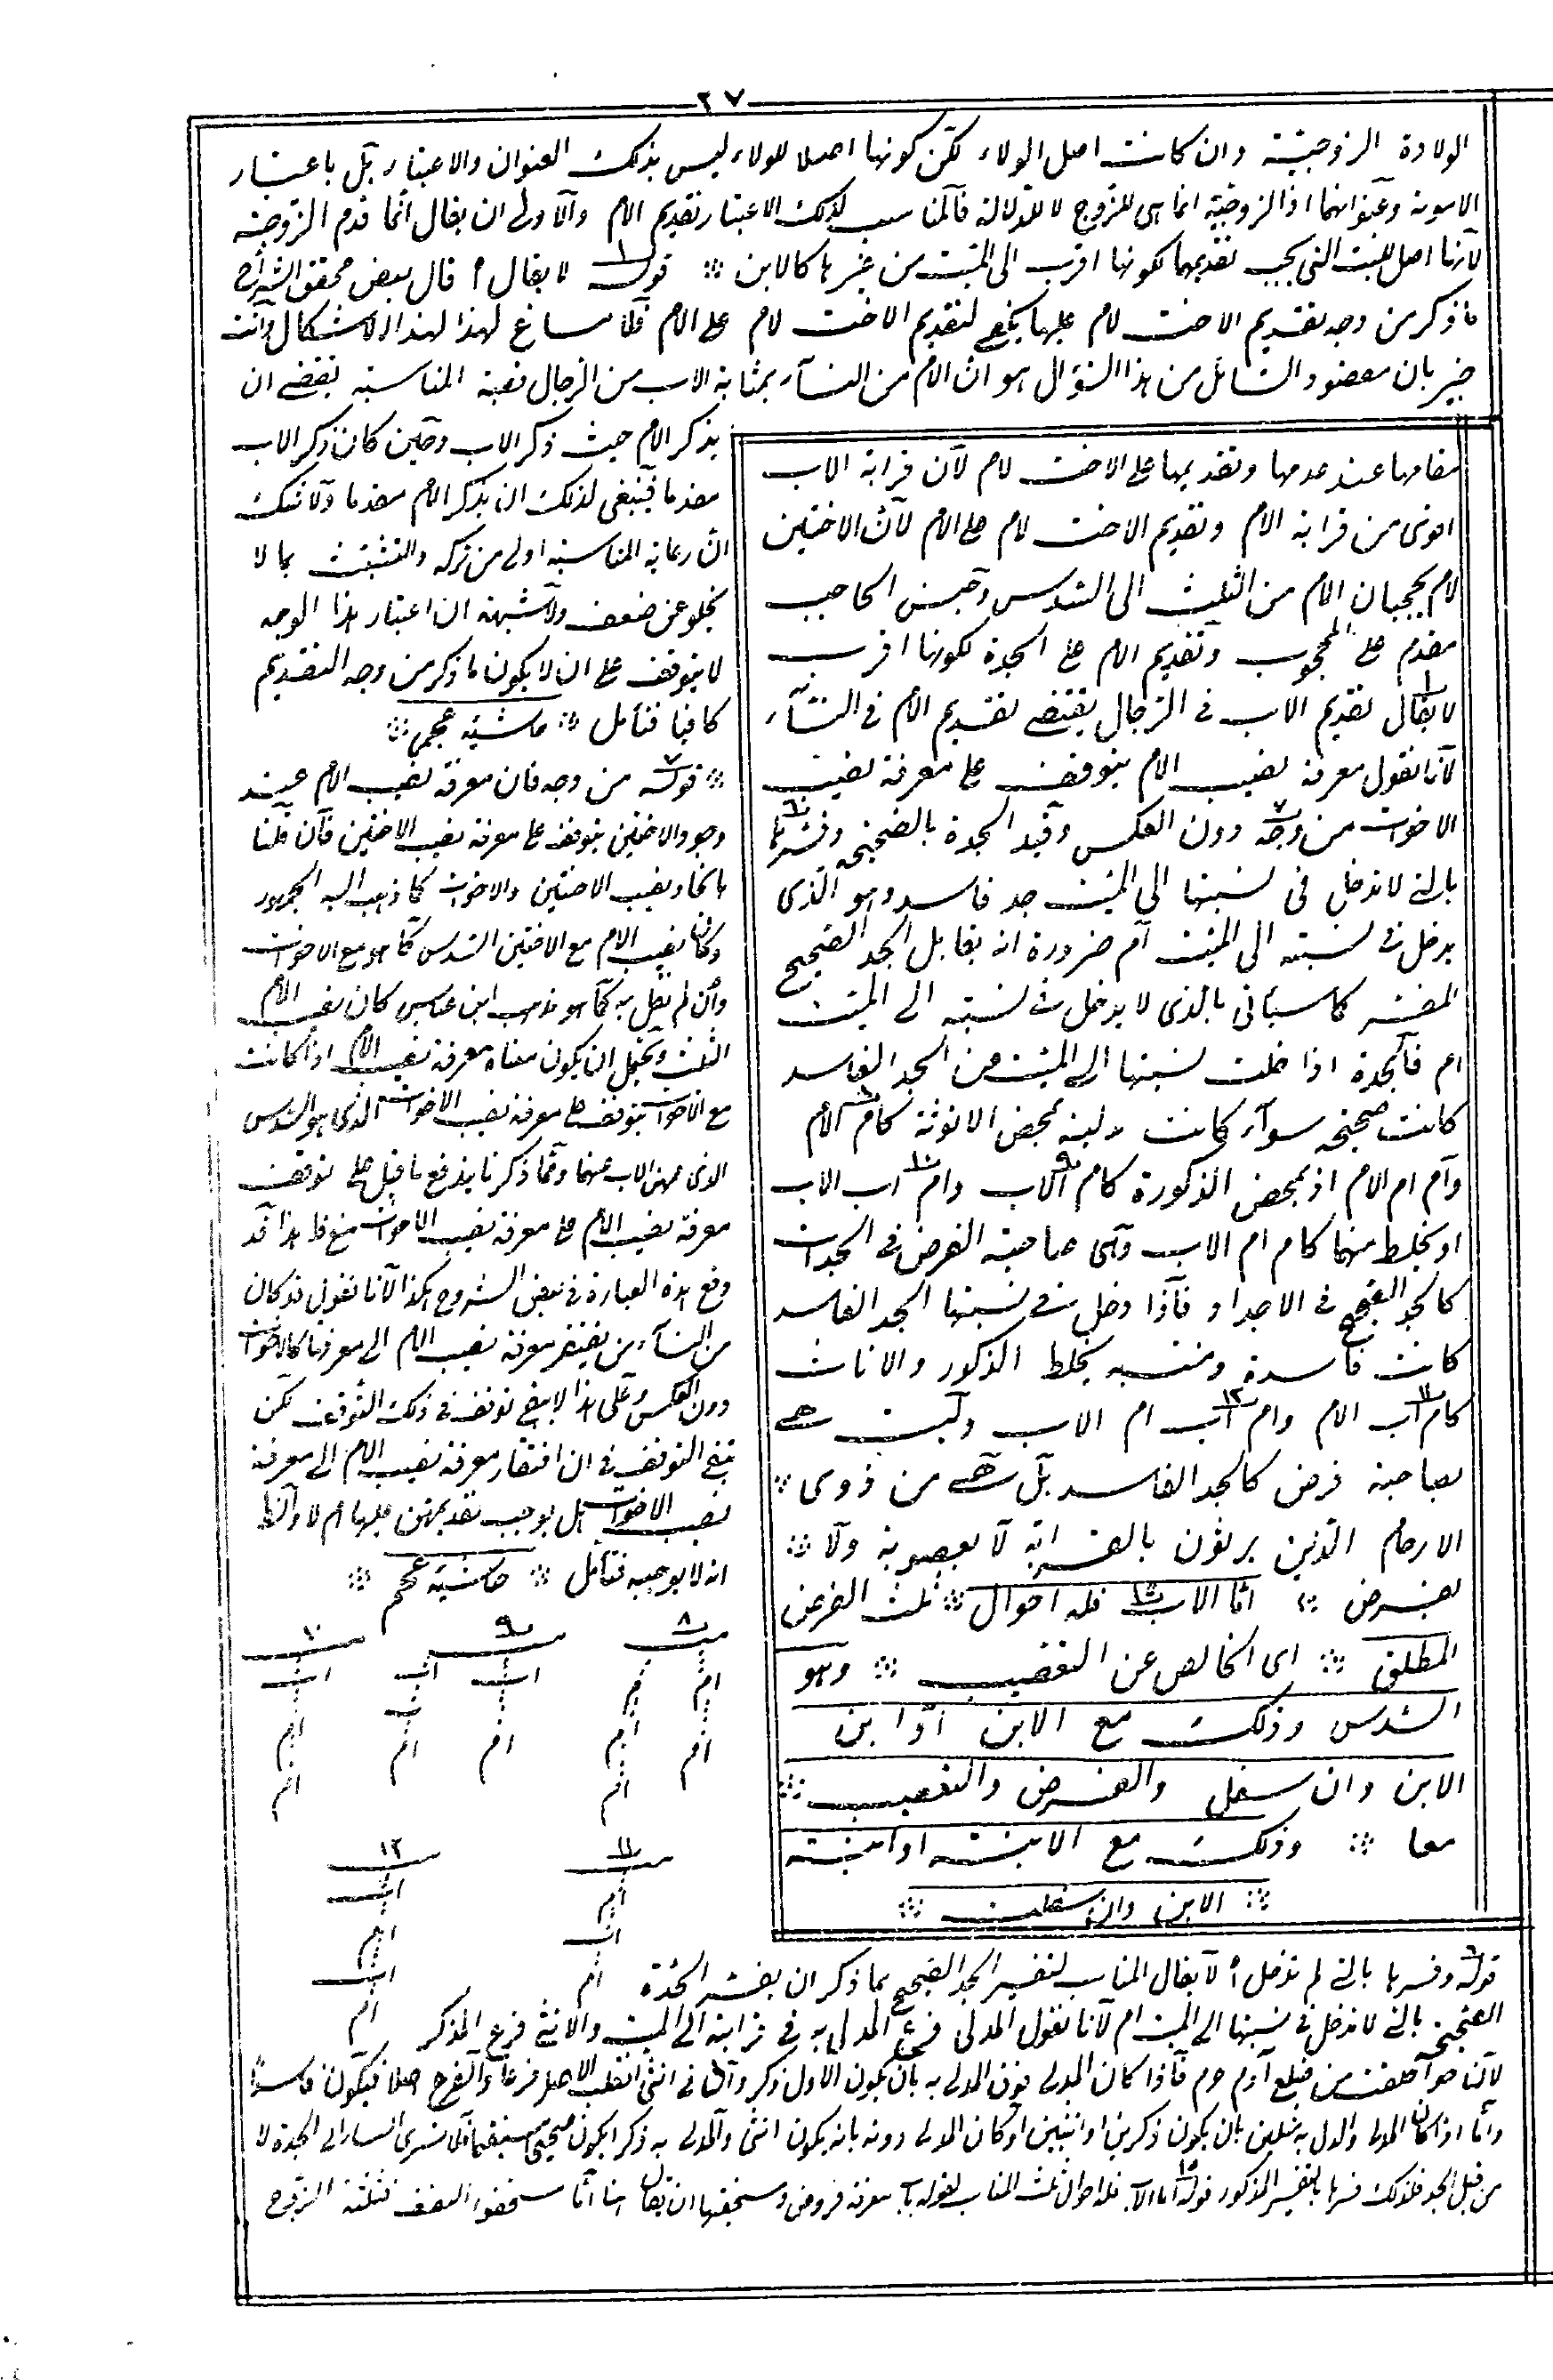 ٢٧
الولادة الزوجية وان كانت اصل الولاء لكن كونها اصلا للولاء ليس بذلك العنوان والاعتبار بل باعتبار
الامومة وعنوانهما اذ الزوجية انما هى للزوج لا للولادة فالمناسب لذلك الاعتبار تقديم الام والاولى ان يقال انما قدم الزوجية
لانها اصل للبنت التى يجب تقديمها لكونها اقرب الى الميت من غيرها كالابن قوله لا يقال قال بعض محقق الشراح
ما ذكر من وجه تقديم الاخت لام عليها يكفى لتقديم الاخت لام على الام فلا مساغ لهذا الاشكال وانت
خبير بان مقصود السائل من هذا السؤال هو ان الام من النساء بمثابة الاب من الرجال فعبة المناسبة يقتضى ان
يذكر الام حيث ذكر الاب وحين كان ذكر الاب
مقدما فينبغى لذلك ان يذكر الام مقدما ولا شك
ان رعاية المناسبة اولى من تركه والتشبث بما لا
يخلو عن ضعف ولا شبهة ان اعتبار هذا الوجه
لا يتوقف على ان لا يكون ما ذكر من وجه التقديم
كافيا فتأمل حاشية عجم
قوله من وجه فان معرفة نصيب الام عند
وجود الاختين يتوقف على معرفة نصيب الاختين فان قلنا
باتحاد نصيب الاختين والاخوات كما ذهب اليه الجمهور
وكان نصيب الام مع الاختين السدس كما هو مع الاخوات
وان لم نقل به كما هو مذهب ابن عباس كان نصيب الام
الثلث ويحتمل ان يكون معناه معرفة نصيب الام اذا كانت
مع الاخوات يتوقف على معرفة نصيب الاخوات الذى هو السدس
الذى الاب عنها ومما ذكرنا يندفع ما قيل على توقف
معرفة نصيب الام على معرفة نصيب الاخوات منع هذا قد
وقع هذه العبارة فى بعض الشروح هكذا لانا نقول قد كان
من النساء من يفتقر معرفة نصيب الام الى معرفتها كالاخوات
دون العكس وعلى هذا لا يبقى توقف فى ذلك التوقف لكن
بقى التوقف فى ان افتقار معرفة نصيب الام الى معرفة
نصيب الاخوات هل يوجب تقديمهن عليها ام لا والظ
انه لا يوجبه فتأمل حاشية عجم
مقامها عند عدمها وتقديمها على الاخت لام لان قرابة الاب
اقوى من قرابة الام وتقديم الاخت لام على الام لان الاختين
لام يحجبان الام من الثلث الى السدس وجنس الحاجب
مقدم على المحجوب وتقديم الام على الجدة لكونها اقرب
لا يقال تقديم الاب فى الرجال يقتضى تقديم الام فى النساء
لانا نقول معرفة نصيب الام يتوقف على معرفة نصيب
الاخوات من وجه دون العكس وقيد الجدة بالصحيحة وفسرها
بالتى لا تدخل فى نسبتها الى الميت جد فاسد وهو الذى
يدخل فى نسبته الى الميت ام ضرورة انه يقابل الجد الصحيح
المفسر كما سيأتى بالذى لا يدخل فى نسبته الى الميت
ام فالجدة اذا خلت نسبتها الى الميت من الجد الفاسد
كانت صحيحة سواء كانت مدلية بمحض الانوثة كام الام
وام ام الام او بمحض الذكورة كام الاب وام اب الاب
او بخلط منهما كام ام الاب وهى صاحبة الفرض فى الجدات
كالجد الصحيح فى الاجداد فاذا دخل فى نسبتها الجد الفاسد
كانت فاسدة ومنتسبه بخلط الذكور والاناث
كام اب الام وام اب ام الاب وليست هى
بصاحبة فرض كالجد الفاسد بل هى من ذوى
الارحام الذين يرثون بالقرابة لا بعصوبة ولا
بفرض اما الاب فله احوال ثلث الفرض
المطلق اى الخالص عن التعصيب وهو
السدس وذلك مع الابن او ابن
الابن وان سفل والفرض والتعصيب
معا وذلك مع الابنة او ابنة
الابن وان سفلت
٨ ٩ ١٠
ميت ميت ميت
ام ام اب اب اب
ام ام ام اب ام
ام ام ام
١١ ١٢
ميت ميت
ام اب
اب ام
ام اب
ام
قوله وفسرها بالتى لم تدخل لا يقال المناسب لتفسير الجد الصحيح بما ذكر ان يفسر الجدة
الصحيحة بالتى لا تدخل فى نسبتها الى الميت ام لانا نقول المدلى فرع المدلى به فى قرابته الى الميت والانثى فرع المذكر
لان حوا خلقت من ضلع آدم عم فاذا كان المدلى فوق المدلى به بان يكون الاول ذكر والثانى انثى انقلب الاصل فرعا والفرع اصلا فيكون فاسدا
واما اذا كان المدلى والمدلى به مثلين بان يكون ذكرين او انثيين او كان المدلى دونه بانه يكون انثى والمدلى به ذكرا يكون صحيحا مستقيما فلا يسرى الفساد الى الجدة لا
من قبل الجد فلذلك فسرها بالتفسير المذكور قوله اما الاب فله احوال ثلث المناسب لقوله باب معرفة فروض ومستحقيها ان يقال هنا اما مستحقوا النصف فثلثة الزوج